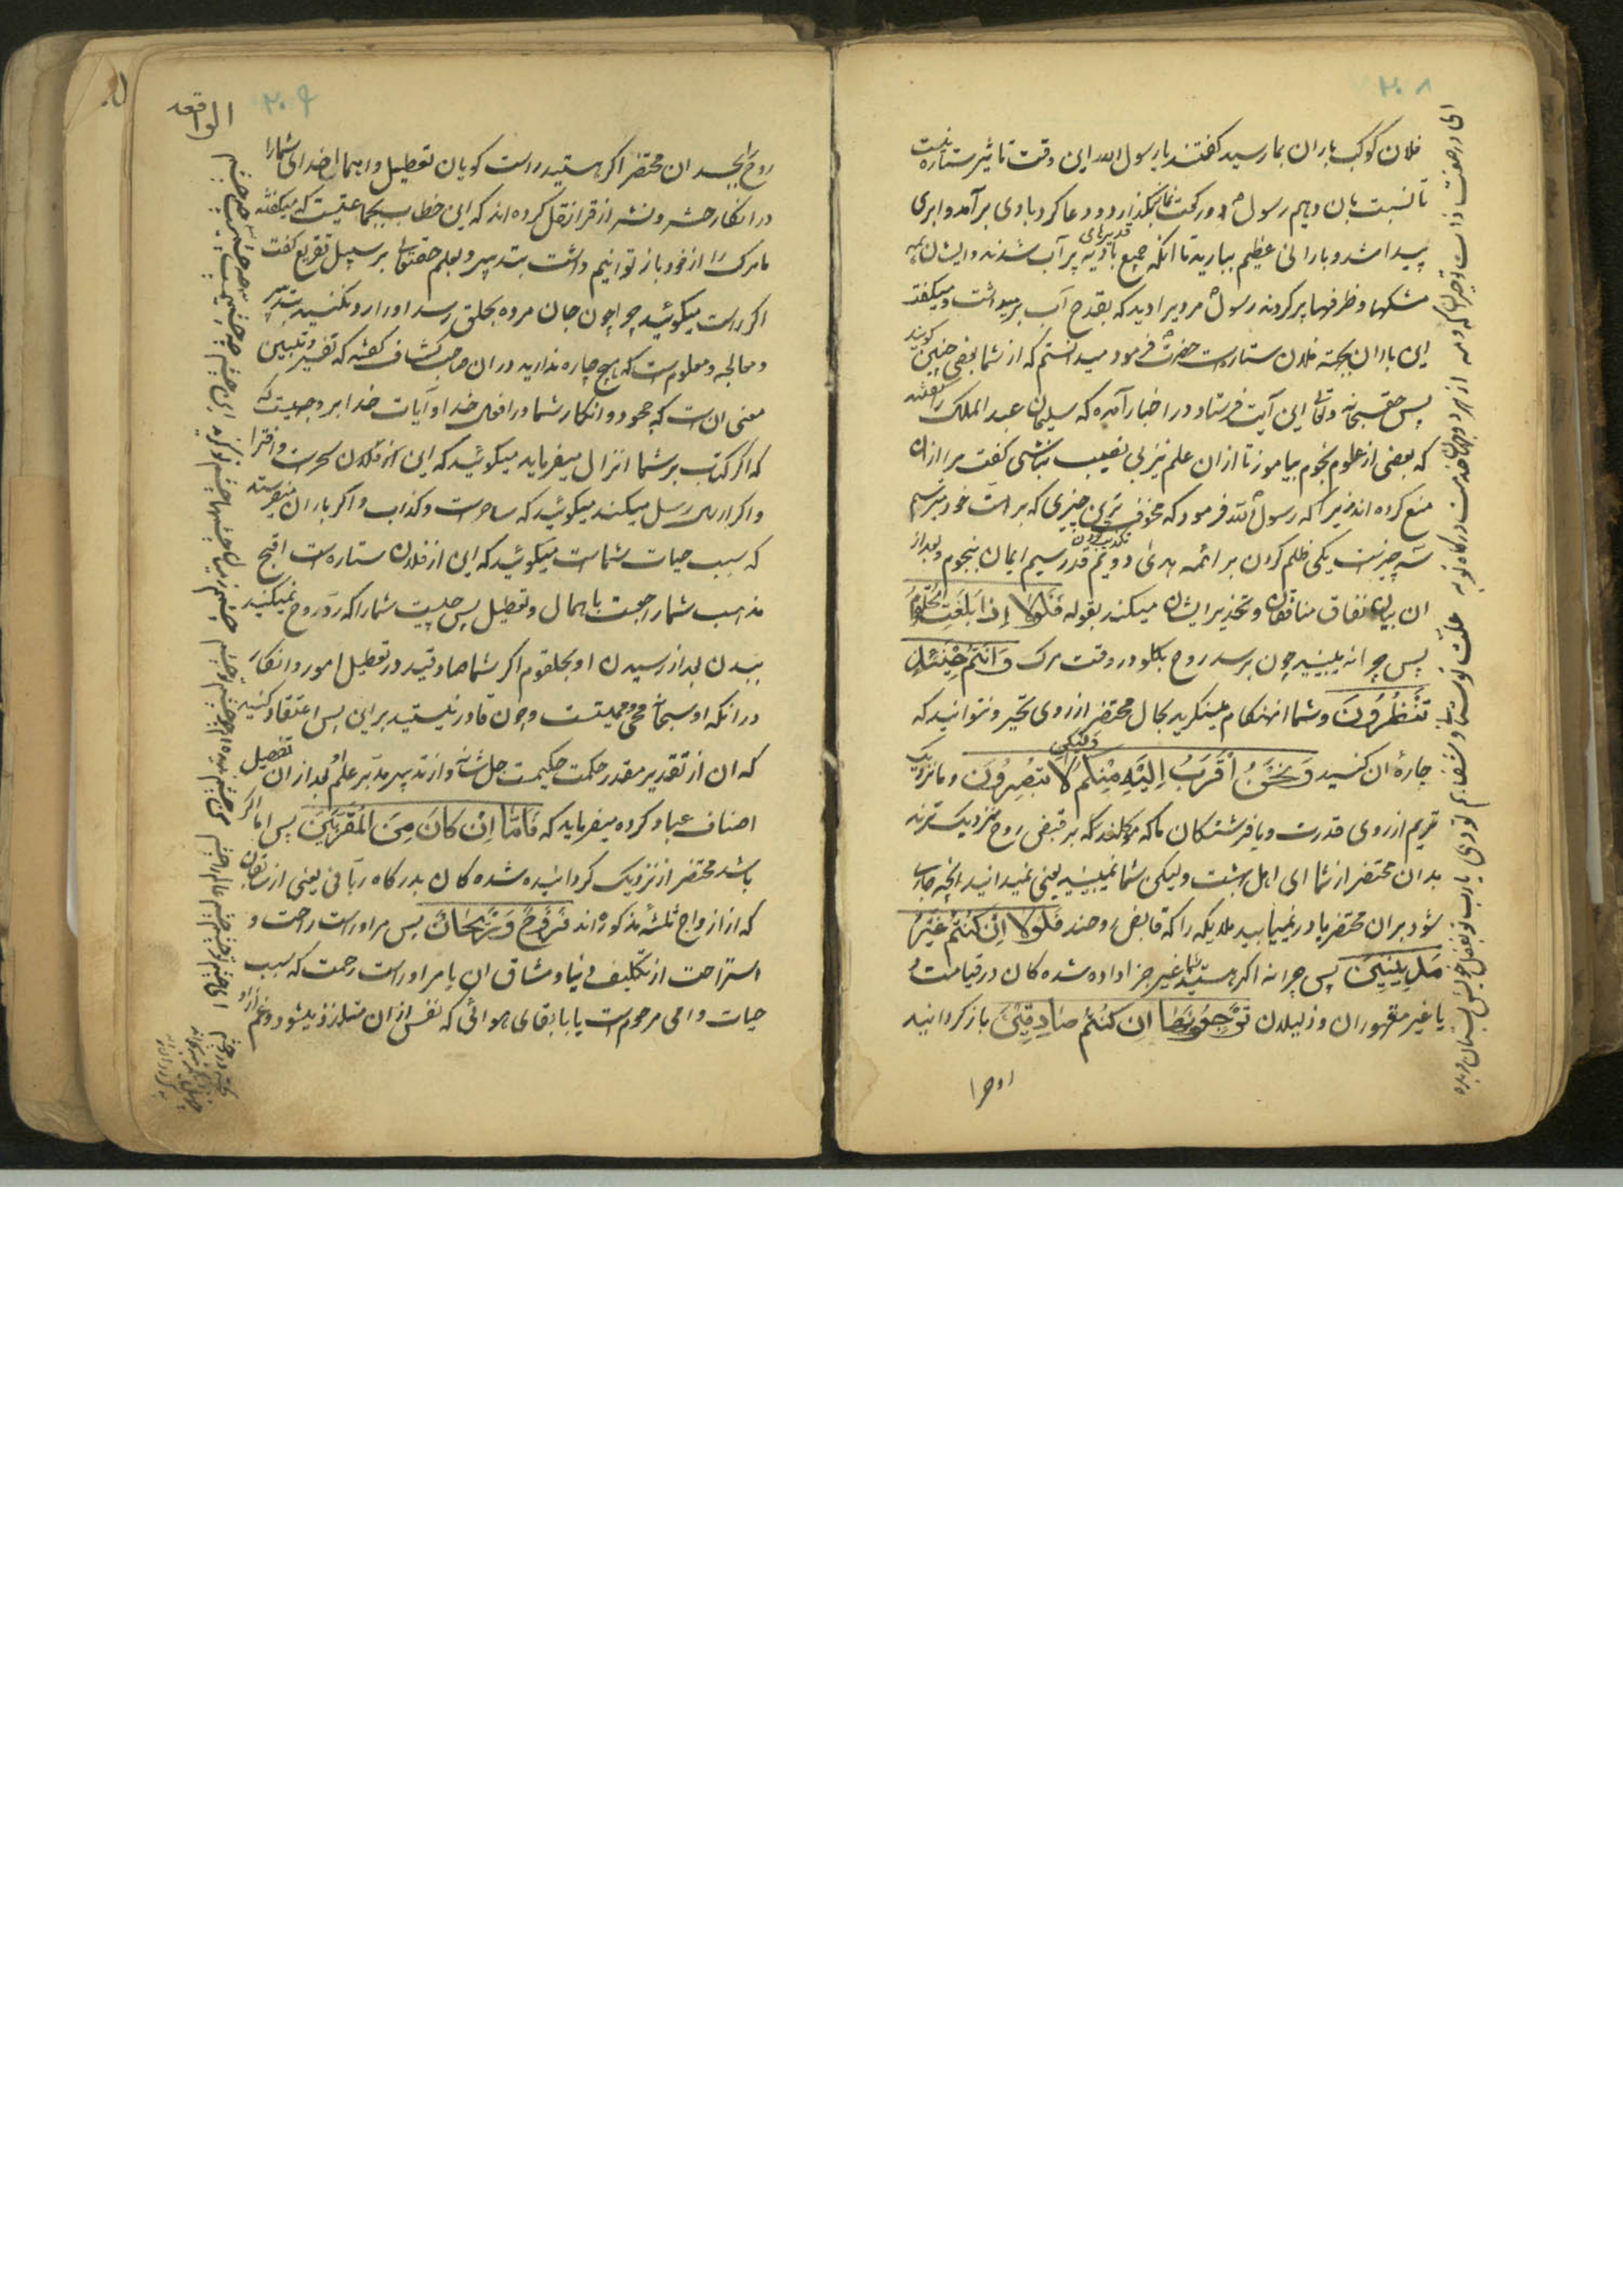 ۲۰۸
فلان کوکب باران بما رسید کفتند یا رسول الله این وقت تاثیر ستاره نیست
تا نسبت بان دهیم رسول دو رکعت نماز بکذارد و دعا کرد بادی برآمد و ابری
پیدا شد و بارانی عظیم ببارید تا انکه جمیع بادیه پر آب شدند و ایشان همه
مشکها و ظرفها پر کردند رسول مردیرا دید که بقدح آب برمیداشت و میکفت
این باران بجهة فلان ستاره است حضرت فرمود میدانستم که از شما بعضی چنین کویند
پس حقسبحانه وتعالی این آیت فرستاد و در اخبار آمده که سلیمان عبد الملک را کفتند
که بعضی از علوم نجوم بیاموز تا ازان علم نیز بی نصیب نباشی کفت مرا ازان
منع کرده اند زیرا که رسول الله فرمود که مخوف ترین چیزی که بر امت خود میترسم
سه چیز است یکی ظلم کردن بر ائمه هدی دویم تکذیب کردن قدر سیم ایمان بنجوم و بعد از
ان بیان نفاق منافقان و تحذیر ایشان میکند بقوله فَلَوْلا إِذا بَلَغَتِ الْحُلْقُومَ
پس چرا نه ببینید چون برسد روح بکلو در وقت مرک وَأَنْتُمْ حِينَئِذٍ
تَنْظُرُونَ و شما انهنکام مینکرید بحال محتضر از روی تحیر و نتوانید که
چارهٔ ان کنید وَنَحْنُ أَقْرَبُ إِلَيْهِ مِنْكُمْ وَلكِنْ لا تُبْصِرُونَ و ما نزدیک
تریم از روی قدرت و یا فرشتکان ما که موکلند که بر قبض روح نزدیک ترند
بدان محتضر از شما ای اهل بیت ولیکن شما نمیبینید یعنی نمیدانید انچه جاری
شود بران محتضر یا در نمییابید ملایکه را که قابض روحند فَلَوْلا إِنْ كُنْتُمْ غَيْرَ
مَدِينِينَ پس چرا نه اکر هستید شما غیر جزا داده شده کان در قیامت
یا غیر مقهوران و ذلیلان تَرْجِعُونَها إِنْ كُنْتُمْ صادِقِينَ باز کردانید
روح را
۲۰۹
الواقعه
روح را بجسد ان محتضر اکر هستید راست کویان تعطیل و اهمال خدای شما را
در انکار حشر و نشر از فرا نقل کرده اند که این خطاب بجماعتیست که میکفتند
ما مرک را از خود باز توانیم داشت بتدبیر و بعلم حقتعالی بر سبیل تقریع کفت
اکر راست میکوئید چرا چون جان مرده بحلق رسد او را رد نکنید بتدبیر
و معالجه و معلومست که هیچ چاره ندارید در ان صاحب کشاف کفته که تفسیر و تبیین
معنی ان است که جحود و انکار شما در افعال خدا و آیات خدا بر وجهیست که
که اکر کتاب بر شما انزال میفرماید میکوئید که این سحر است و افترا
و اکر ارسال رسل میکند میکوئید که ساحرست و کذاب و اکر باران میفرستد
که سبب حیات شماست میکوئید که این از فلان ستاره است اقبح
مذاهب شما راجعست باهمال و تعطیل پس چیست شما را که رد روح نمیکنید
ببدن بعد از رسیدن او بحلقوم اکر شما صادقید در تعطیل امور و انکار
در انکه او سبحانه محیی و ممیتست و چون قادر نیستید براین پس اعتقاد کنید
که ان از تقدیر مقدر حکمت حکیمست جل شانه و از تدبیر مدبر علم بعد ازان تفصیل
اصناف عباد کرده میفرماید که فَأَمَّا إِنْ كانَ مِنَ الْمُقَرَّبِينَ پس اما اکر
باشد محتضر از نزدیک کردانیده شده کان بدرکاه ربانی یعنی از سابقان
که از ازواج ثلثه مذکوره اند فَرَوْحٌ وَرَيْحانٌ پس مر او راست راحت و
استراحت از تکلیف دنیا و مشاق ان یا مر اوراست رحمت که سبب
حیات دامی مرحوم است یا بابقای هوائی که نفس ازان متلذذ میشود و غم ازو